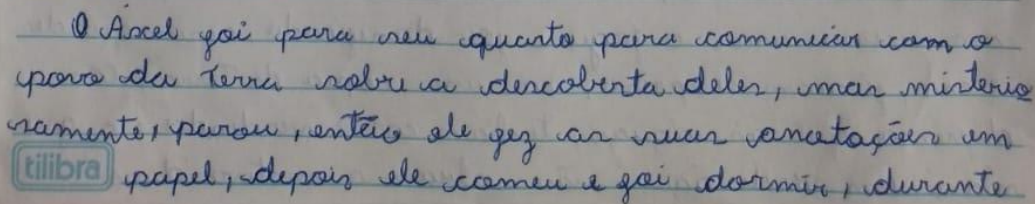 O Axcel foi para seu quarto para comunicar com o
povo da Terra sobre a descoberta deles, mas misterio
samente, parou, então ele fez as suas anotações em
tilibra papel, depois ele comeu e foi dormir, durante